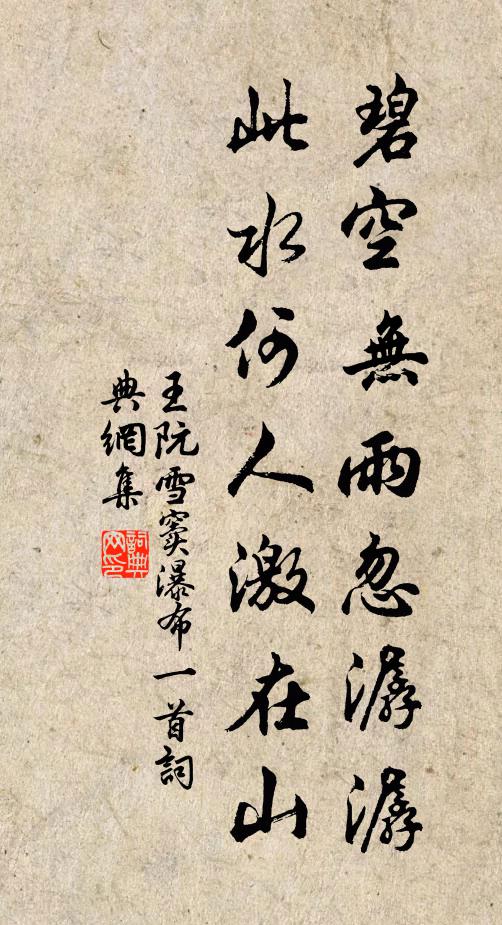 碧空無雨忽潺潺
此水何人激在山
王阮雪竇瀑布一首詞
典網集
詞典網印